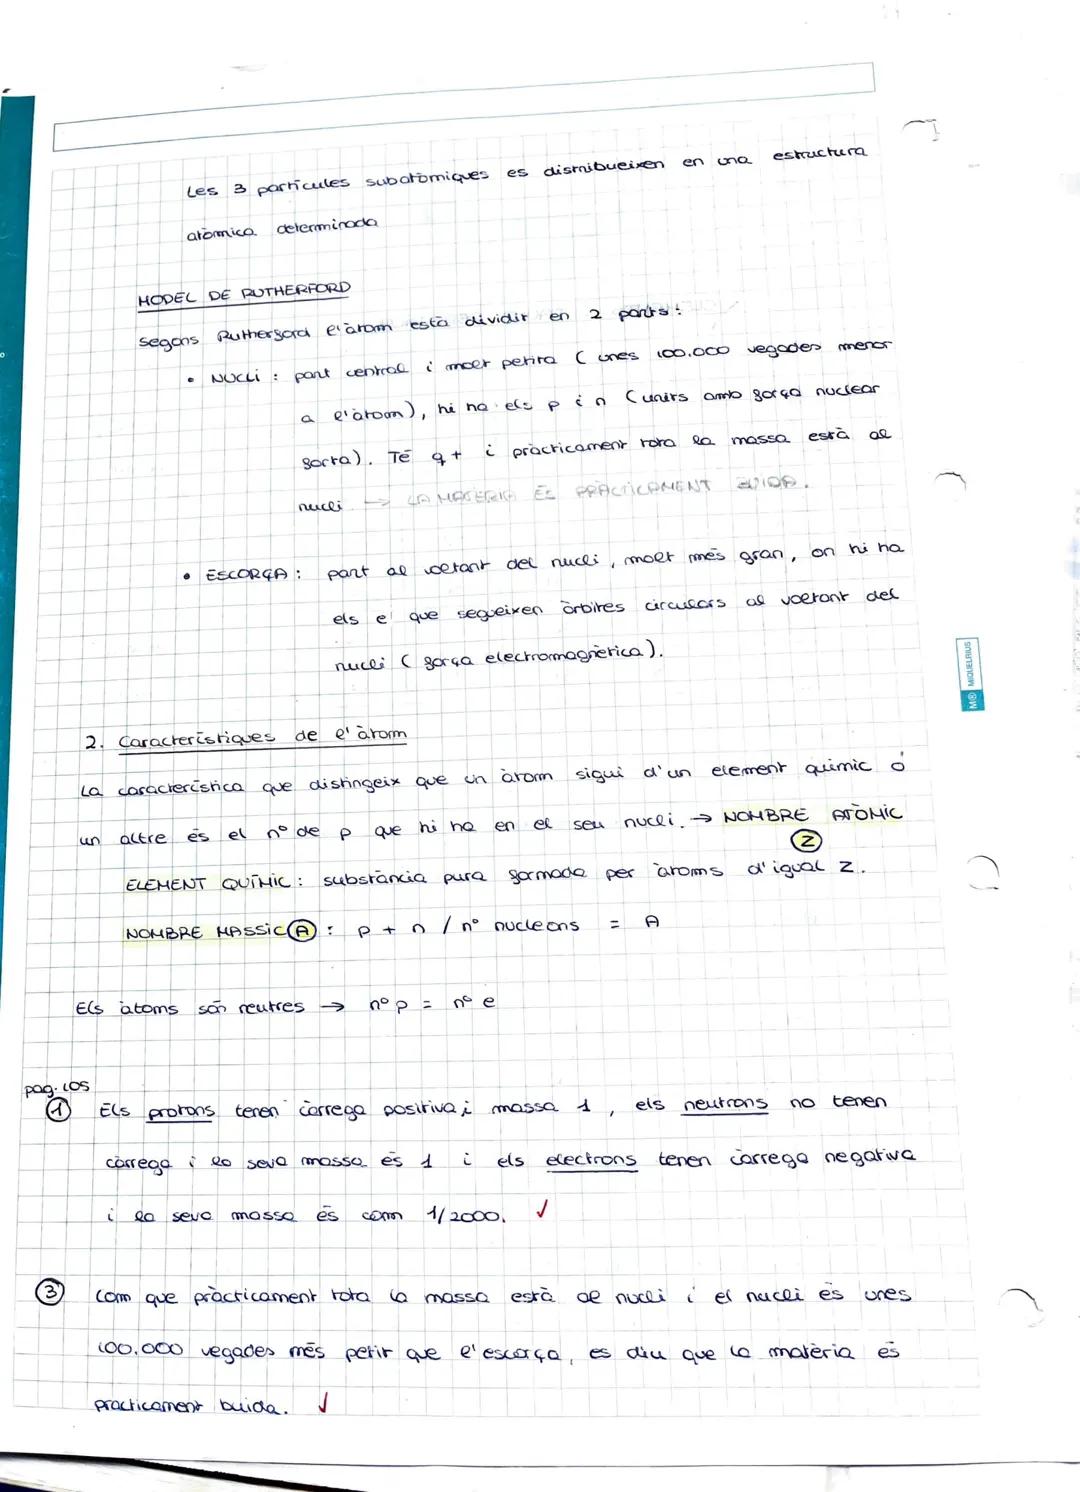 Les 3 partícules subatòmiques es distribueixen en una estructura
atòmica determinada
MODEL DE RUTHERFORD
Segons Rutherford l'àtom està dividit en 2 parts:
• NUCLI : part central i molt petita ( unes 100.000 vegades menor
a l'àtom), hi ha els p i n (units amb força nuclear
forta). Té q+ i pràcticament tota la massa està al
nucli → LA MATÈRIA ÉS PRÀCTICAMENT BUIDA.
• ESCORÇA : part al voltant del nucli, molt més gran, on hi ha
els e⁻ que segueixen òrbites circulars al voltant del
nucli ( força electromagnètica).
2. Característiques de l'àtom
La característica que distingeix que un àtom sigui d'un element químic ó
un altre és el nº de p que hi ha en el seu nucli. → NOMBRE ATÒMIC
Z
ELEMENT QUÍMIC : substància pura formada per àtoms d'igual Z.
NOMBRE MASSIC A : p + n / nº nucleons = A
Els àtoms són neutres → nº p = nº e
pag. 105
1 Els protons tenen càrrega positiva i massa 1, els neutrons no tenen
càrrega i la seva massa és 1 i els electrons tenen càrrega negativa
i la seva massa és com 1/2000. ✓
3 Com que pràcticament tota la massa està al nucli i el nucli és unes
100.000 vegades més petit que l'escorça, es diu que la matèria és
practicament buida. ✓
M® MIQUELRIUS